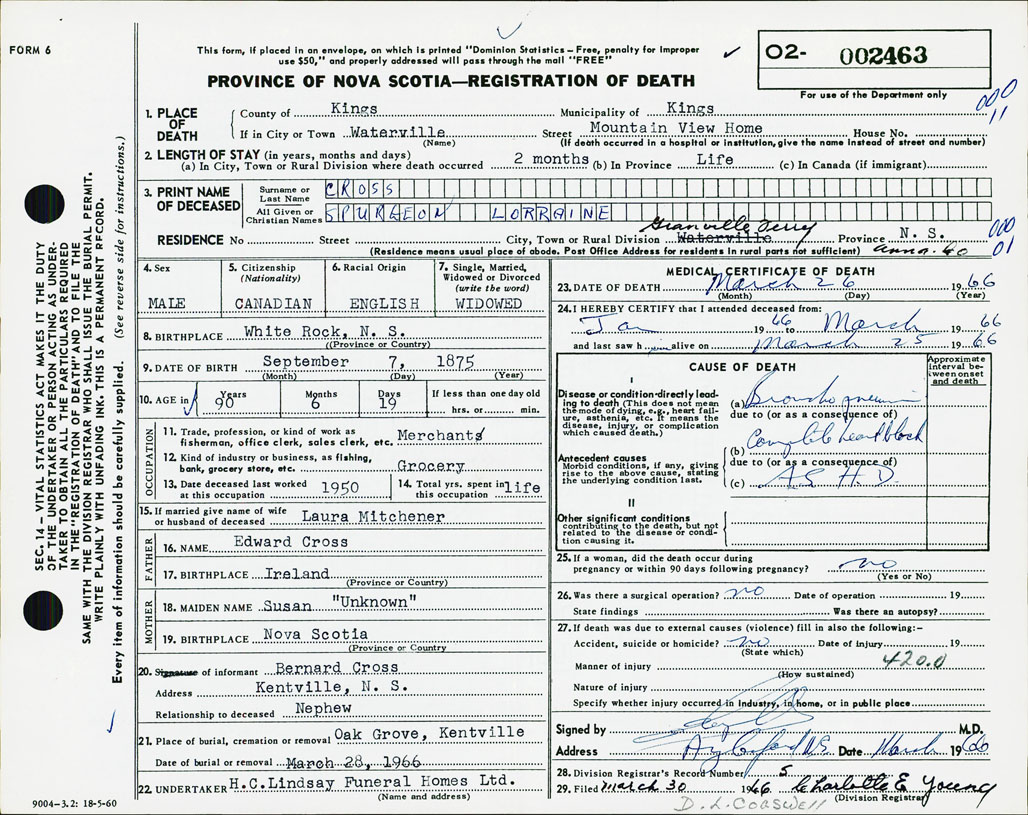 FORM 6
This form, if placed in an envelope, on which is printed "Dominion Statistics – Free, penalty for improper
use $50," and properly addressed will pass through the mail "FREE"
PROVINCE OF NOVA SCOTIA—REGISTRATION OF DEATH
O2- 002463
For use of the Department only
000
11
1. PLACE OF DEATH
County of Kings Municipality of Kings
If in City or Town Waterville Street Mountain View Home House No.
(Name) (If death occurred in a hospital or institution, give the name instead of street and number)
2. LENGTH OF STAY (in years, months and days)
(a) In City, Town or Rural Division where death occurred 2 months (b) In Province Life (c) In Canada (if immigrant)
3. PRINT NAME OF DECEASED
Surname or Last Name CROSS
All Given or Christian Names SPURGEON LORRAINE
000
01
RESIDENCE No Street City, Town or Rural Division Waterville Granville Ferry Province N. S.
(Residence means usual place of abode. Post Office Address for residents in rural parts not sufficient) Anna. Co
4. Sex MALE
5. Citizenship (Nationality) CANADIAN
6. Racial Origin ENGLISH
7. Single, Married, Widowed or Divorced (write the word) WIDOWED
8. BIRTHPLACE White Rock, N. S.
(Province or Country)
9. DATE OF BIRTH September 7, 1875
(Month) (Day) (Year)
10. AGE in Years 90 Months 6 Days 19 If less than one day old hrs. or min.
OCCUPATION
11. Trade, profession, or kind of work as fisherman, office clerk, sales clerk, etc. Merchant
12. Kind of industry or business, as fishing, bank, grocery store, etc. Grocery
13. Date deceased last worked at this occupation 1950
14. Total yrs. spent in this occupation life
15. If married give name of wife or husband of deceased Laura Mitchener
FATHER
16. NAME Edward Cross
17. BIRTHPLACE Ireland
(Province or Country)
MOTHER
18. MAIDEN NAME Susan "Unknown"
19. BIRTHPLACE Nova Scotia
(Province or Country)
20. Signature of informant Bernard Cross
Address Kentville, N. S.
Relationship to deceased Nephew
21. Place of burial, cremation or removal Oak Grove, Kentville
Date of burial or removal March 28, 1966
22. UNDERTAKER H.C.Lindsay Funeral Homes Ltd.
(Name and address)
MEDICAL CERTIFICATE OF DEATH
23. DATE OF DEATH March 26 1966
(Month) (Day) (Year)
24. I HEREBY CERTIFY that I attended deceased from:
Jan 1966 to March 1966
and last saw h im alive on March 25 1966
CAUSE OF DEATH
Approximate interval between onset and death
I
Disease or condition directly leading to death (This does not mean the mode of dying, e.g., heart failure, asthenia, etc. It means the disease, injury, or complication which caused death.)
(a) Bronchopneumonia
due to (or as a consequence of)
(b) Complete heart block
Antecedent causes
Morbid conditions, if any, giving rise to the above cause, stating the underlying condition last.
due to (or as a consequence of)
(c) A.S.H.D.
II
Other significant conditions
contributing to the death, but not related to the disease or condition causing it.
25. If a woman, did the death occur during pregnancy or within 90 days following pregnancy? no
(Yes or No)
26. Was there a surgical operation? no Date of operation 19
State findings Was there an autopsy?
27. If death was due to external causes (violence) fill in also the following:-
Accident, suicide or homicide? no Date of injury 19
(State which)
420.0
Manner of injury
(How sustained)
Nature of injury
Specify whether injury occurred in industry, in home, or in public place
Signed by M.D.
Address N.S. Date March 1966
28. Division Registrar's Record Number 5
29. Filed March 30 1966 Charlotte E Young
(Division Registrar)
D. L. COASWELL
9004-3.2: 18-5-60
SEC. 14 – VITAL STATISTICS ACT MAKES IT THE DUTY
OF THE UNDERTAKER OR PERSON ACTING AS UNDER-
TAKER TO OBTAIN ALL THE PARTICULARS REQUIRED
IN THE "REGISTRATION OF DEATH" AND TO FILE THE
SAME WITH THE DIVISION REGISTRAR WHO SHALL ISSUE THE BURIAL PERMIT.
WRITE PLAINLY WITH UNFADING INK. THIS IS A PERMANENT RECORD.
Every item of information should be carefully supplied. (See reverse side for instructions.)